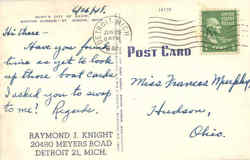 6/26/48.
Hi there —
Have you found
time as yet to look
up those boat cards
I asked you to swap
to me! Regards.
RAYMOND J. KNIGHT
20490 MEYERS ROAD
DETROIT 21, MICH.
DETROIT, MICH.
POST CARD
Miss Frances Murphy,
Hudson,
Ohio.